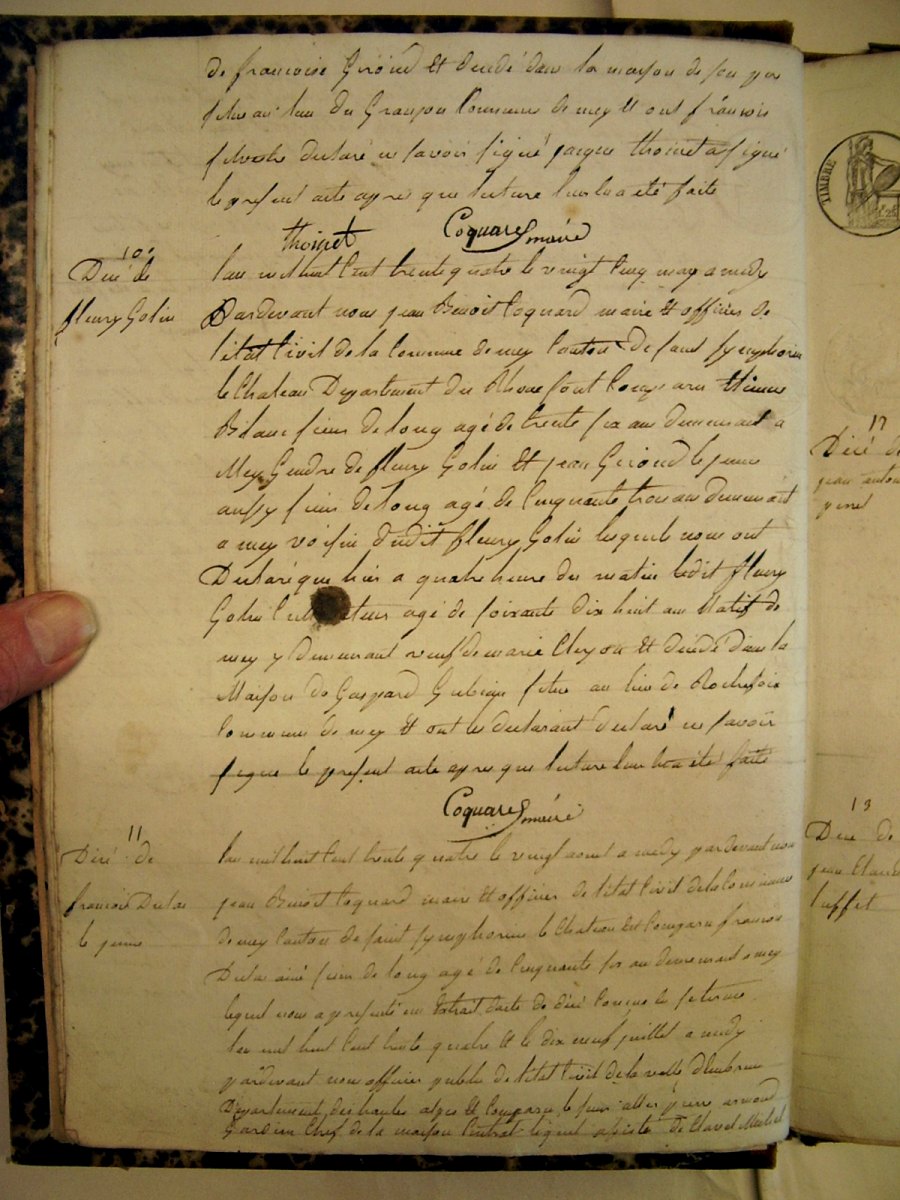 de francoise Giroud et decedé dans la maison de son
au lieu du Granjou Commune de mey et ont françois
declaré ne savoir signé jacque thoinet a signé
le present acte apres que lecture leur en a été faite
thoinet Coquard maire
10
Decé de
fleury Golin
lan mil huit cent trente quatre le vingt cinq may a midy
Pardevant nous jean Benoit Coquard maire et officier de
letat Civil de la Commune de mey Canton de saint symphorien
le Chateau Departement du Rhone sont comparu
sieur de long agé de trente six ans demeurant a
Mey Gendre de fleury Golin et jean Giroud le jeune
aussy sieur de long agé de cinquante trois ans demeurant
a mey voisin dudit fleury Golin lesquels nous ont
Declaré que hier a quatre heure du matin ledit fleury
Golin agé de soixante dix huit ans Natif de
mey y demeurant veuf de marie et décédé dans la
Maison de Gaspard situé au lieu de
Commune de mey et ont les declarant declaré ne savoir
signe le present acte apres que lecture leur en a été faite
Coquard maire
11
Décé de
francois
le jeune
lan mil huit cent trente quatre le vingt aout a midy pardevant nous
jean Benoit Coquard maire et officier de letat Civil de la Commune
de mey canton de saint symphorien le Chateau est comparu francois
ainé sieur de long agé de cinquante six ans demeurant a mey
lequel nous a presenté un Extrait dacte de décé concus
lan mil huit cent trente quatre et le dix neuf juillet a midy
pardevant nous officier public de letat Civil de la ville dEmbrun
Departement des hautes alpes est comparu le sieur pierre
Gardien Chef de la maison Central lequel assisté de
TIMBRE
12
Décé de
jean
13
Décé de
jean Claude